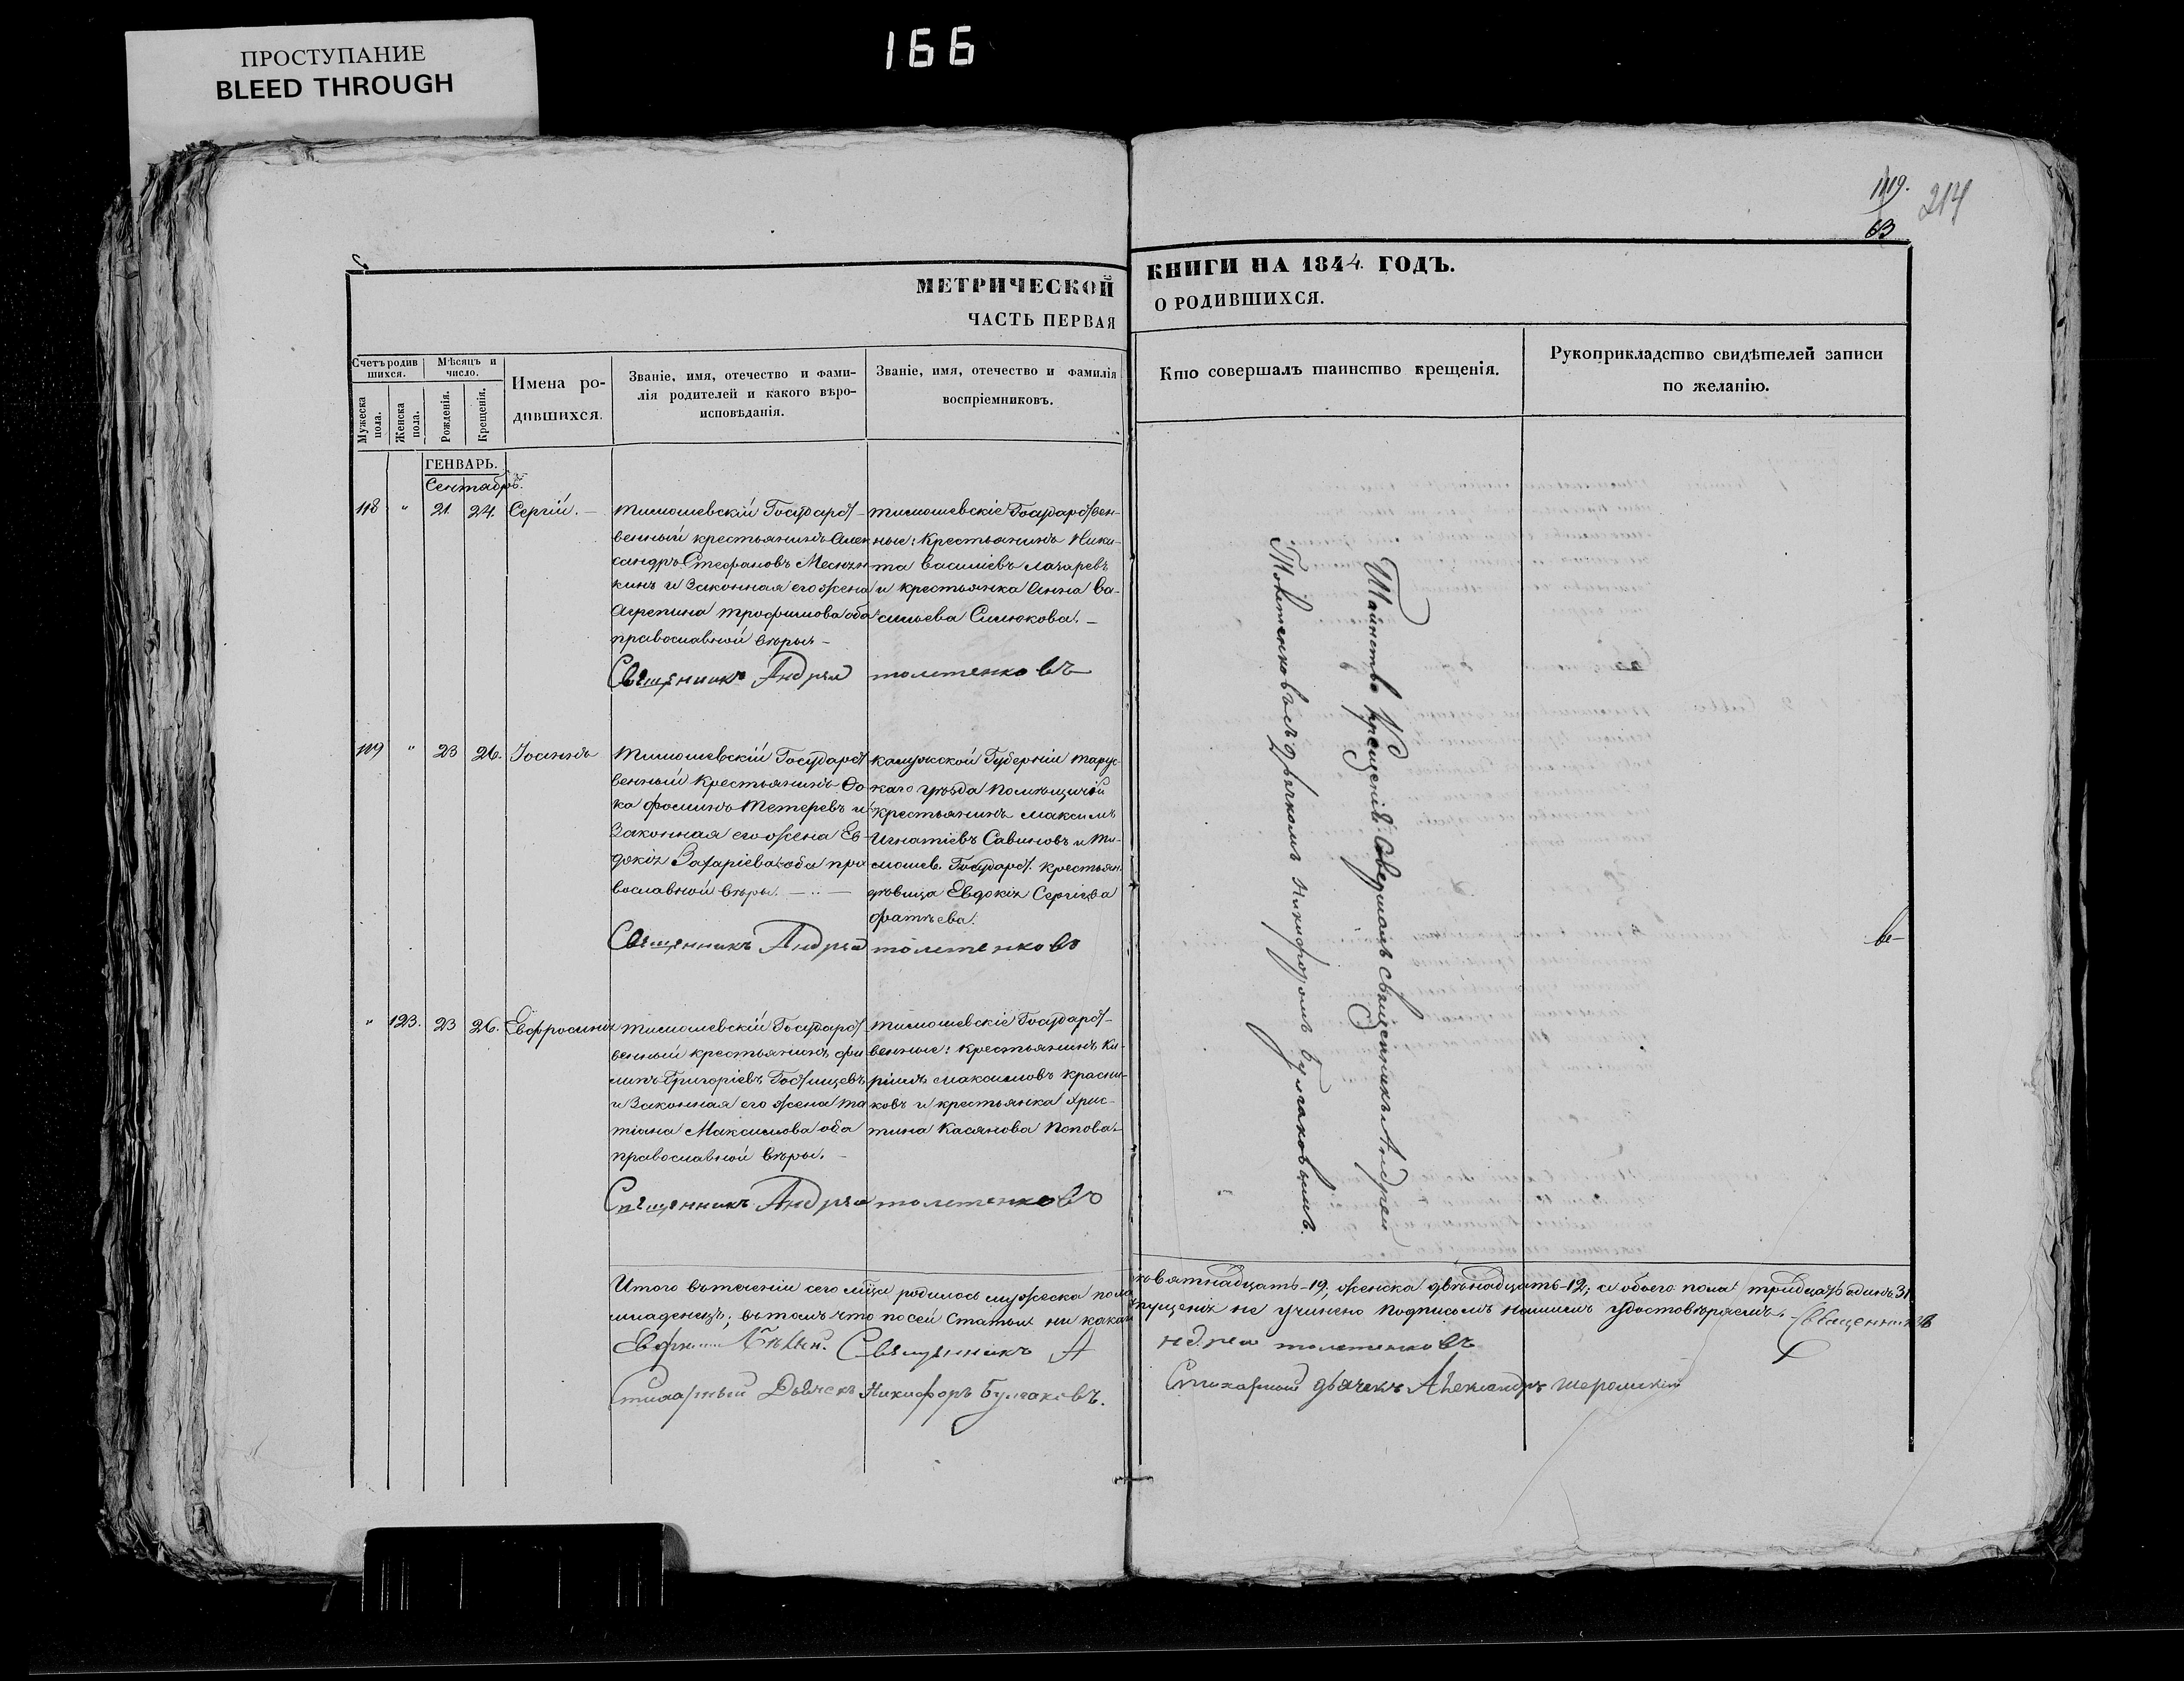 ПРОСТУПАНИЕ
BLEED THROUGH
166
1119.
63
214
МЕТРИЧЕСКОЙ
ЧАСТЬ ПЕРВАЯ
КНИГИ НА 1844. ГОДЪ.
О РОДИВШИХСЯ.
Счетъ родив
шихся.
Мужеска пола.
Женска пола.
Мѣсяцъ и
число.
Рожденія.
Крещенія.
Имена ро-
дившихся.
Званіе, имя, отечество и фами-
лія родителей и какого вѣро-
исповѣданія.
Званіе, имя, отечество и фамилія
воспріемниковъ.
Кто совершалъ таинство крещенія.
Рукоприкладство свидѣтелей записи
по желанію.
ГЕНВАРЬ.
Сентябрь.
118 " 21. 24. Сергій.
Тимошевскій Государст-
венный крестьянинъ Алек
сандръ Стефановъ
кинъ и Законная его жена
Агрепина Трофимова оба
православной вѣры –
Тимошевскіе Государствен-
ные: Крестьянинъ Ники-
та Василіевъ Лазаревъ
и крестьянка Анна Ва-
сильева Силюкова. –
Священникъ Андрей Толстенковъ
119 " 23 26. Іоаннъ
Тимошевскій Государст
венный Крестьянинъ Фо
ка Фоминъ Тетеревъ и
Законная его жена Ев-
докія Захаріева оба пра
вославной вѣры. –
Калужской Губерніи Тарус
каго уѣзда Помѣщичій
крестьянинъ Максимъ
Игнатіевъ Савиновъ и Ти-
мошев. Государст. крестьян.
дѣвица Евдокія Сергіева
Фатѣева.
Священникъ Андрей Толстенковъ
" 123. 23 26. Евфросинія
Тимошевскій Государст
венный крестьянинъ Фи
липъ Григоріевъ Гостищевъ
и Законная его жена Та
тіана Максимова оба
православной вѣры. –
Тимошевскіе Государст-
венные: крестьянинъ Ки-
рилъ Максимовъ Красни-
ковъ и крестьянка Хрис-
тина Касянова Попова.
Священникъ Андрей Толстенковъ
Таинство крещенія Совершалъ священникъ Андрей
Толстенковъ съ дьячкомъ Никифоромъ Булгаковымъ.
Итого въ теченіи сего мѣсяца родилось мужеска пола девятнадцать-19, женска двѣнадцать-12; а обоего пола тридцать одинъ 31
младенецъ; въ томъ что по сей статьи ни какого упущенія не учинено подписомъ нашимъ удостовѣряемъ. Священникъ
Священникъ Андрей Толстенковъ
Стихарный Дьячекъ Никифоръ Булгаковъ.
Стихарный дьячекъ Александръ